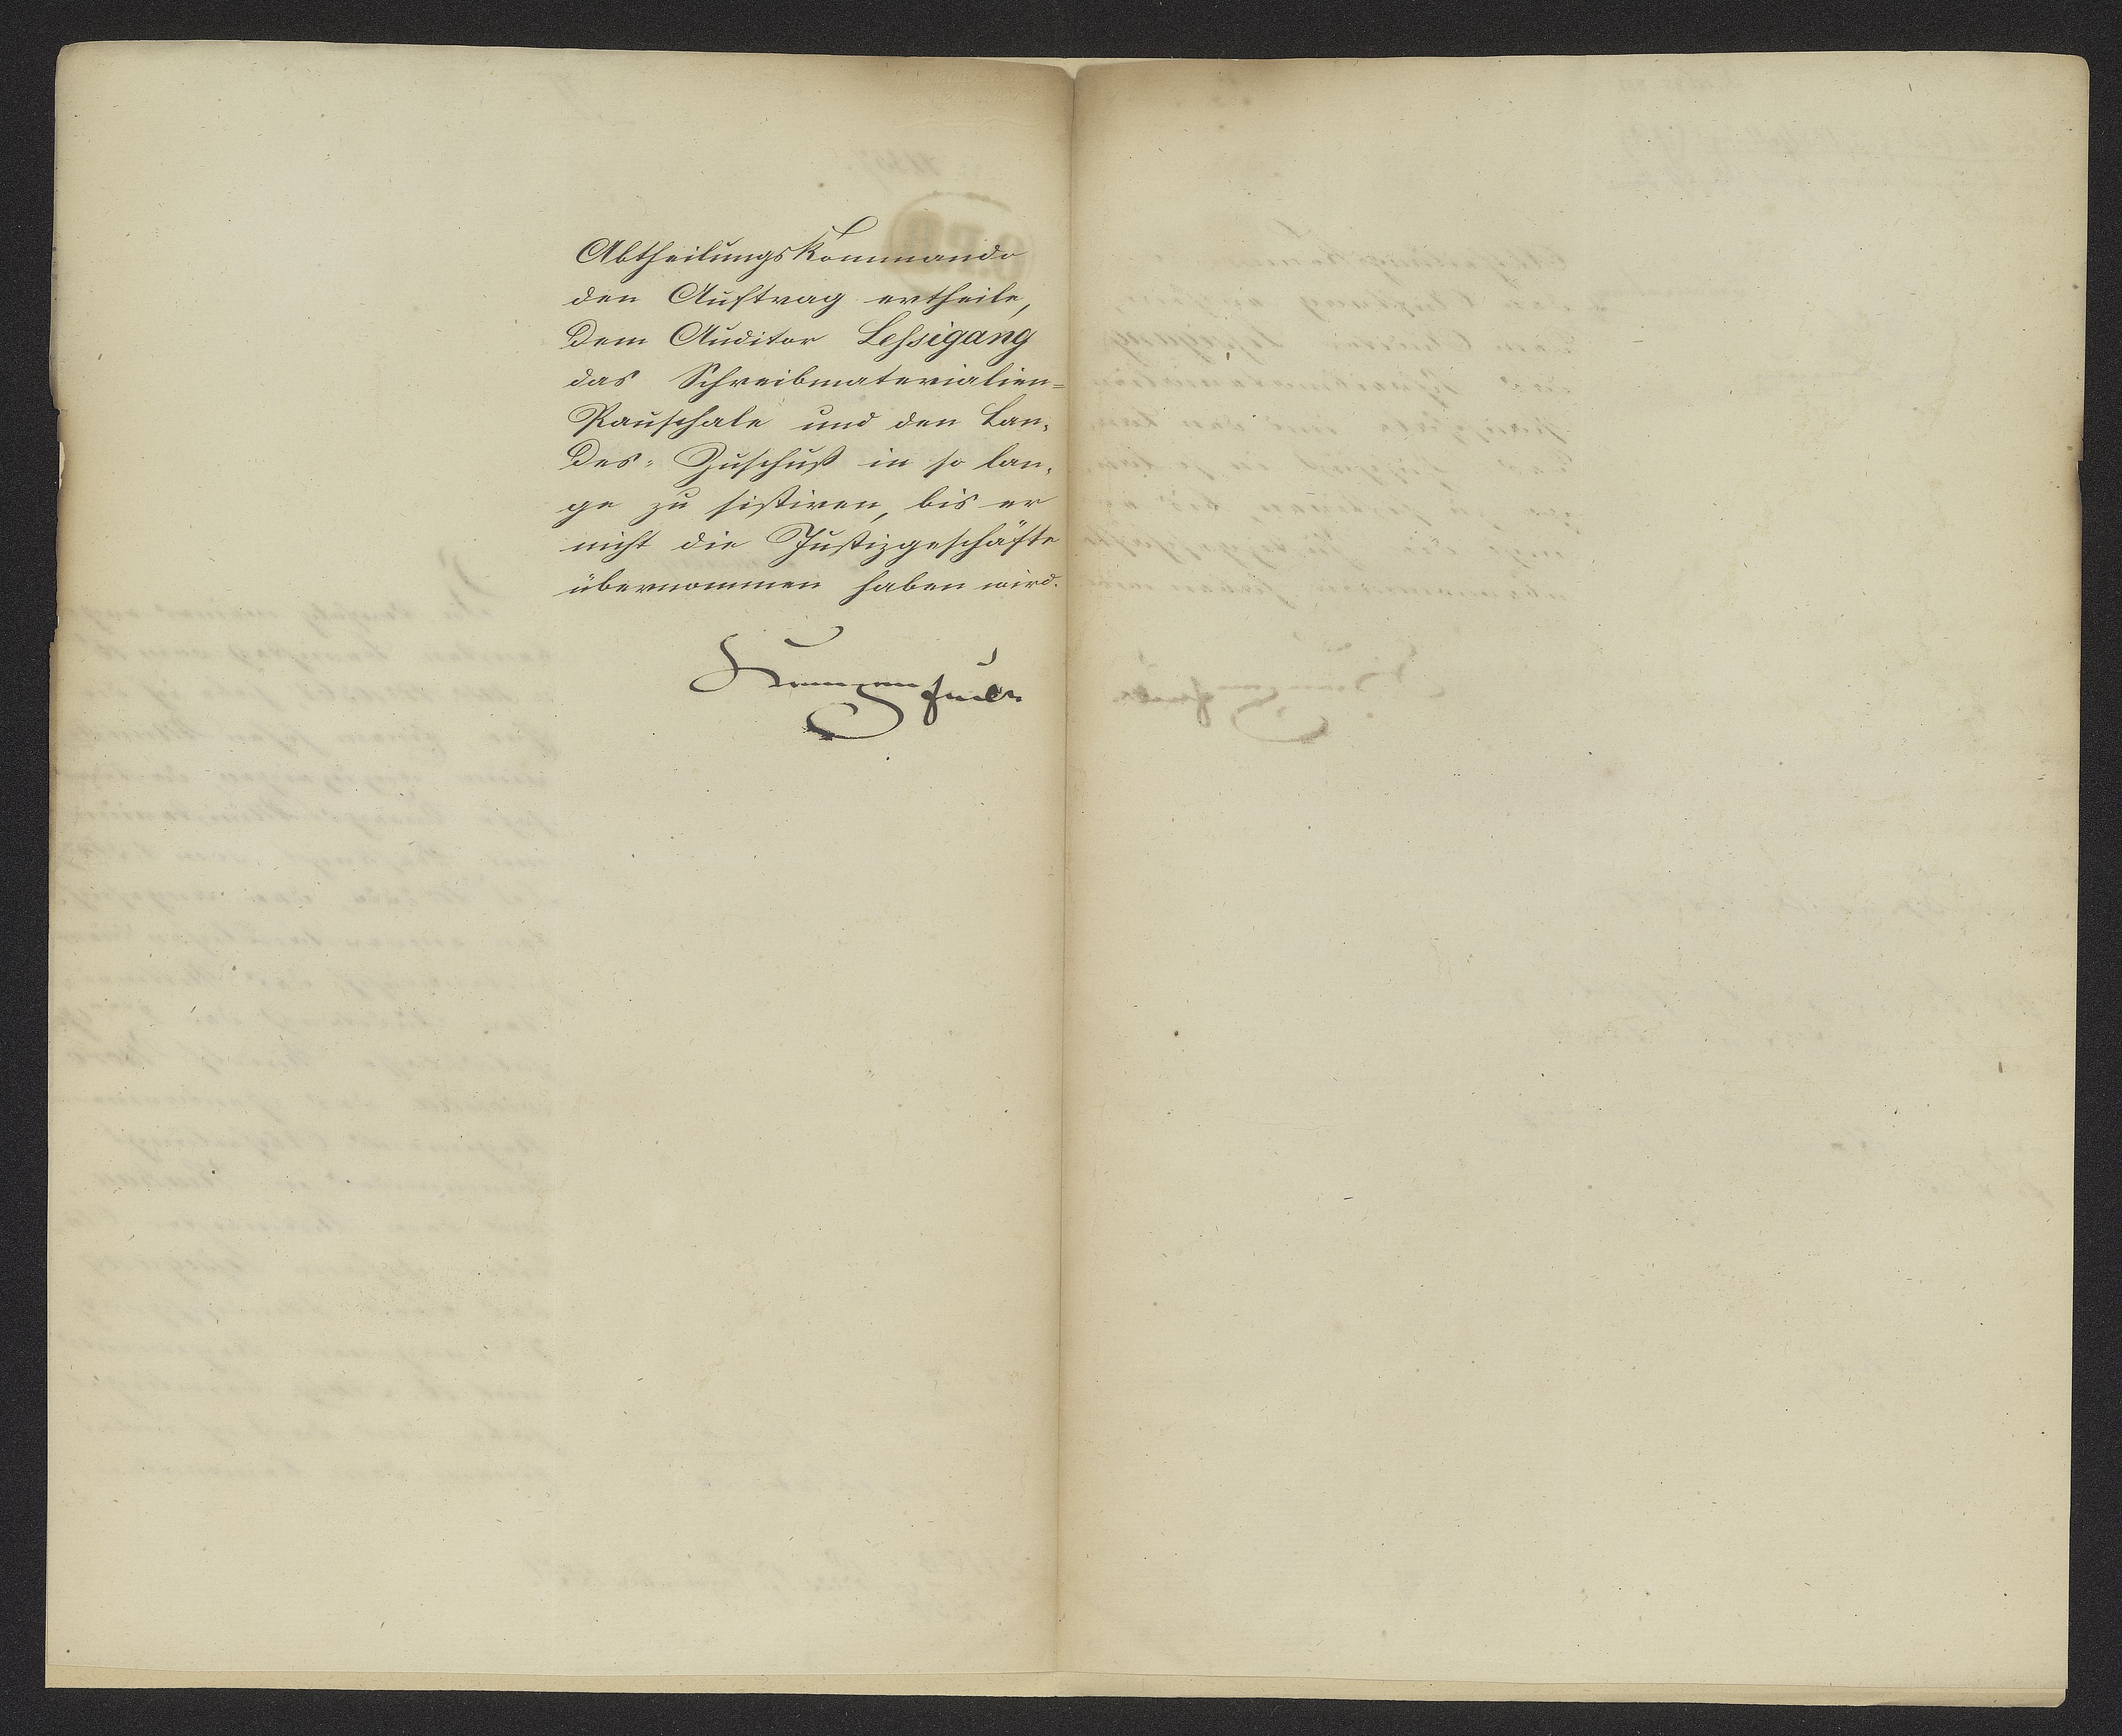 Abtheilungskommando
den Auftrag ertheile,
dem Auditor Lessigang
das Schreibmaterialien=
Pauschale und den Lan„
des„ Zuschuß in so lan„
ge zu sistiren, bis er
nicht die Justizgeschäfte
übernommen haben wird.